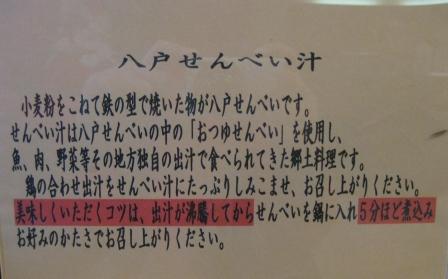 八戸せんべい汁
小麦粉をこねて鉄の型で焼いた物が八戸せんべいです。
せんべい汁は八戸せんべいの中の「おつゆせんべい」を使用し、
魚、肉、野菜等その地方独自の出汁で食べられてきた郷土料理です。
鶏の合わせ出汁をせんべい汁にたっぷりしみこませ、お召し上がりください。
美味しくいただくコツは、出汁が沸騰してからせんべいを鍋に入れ5分ほど煮込み
お好みのかたさでお召し上がりください。